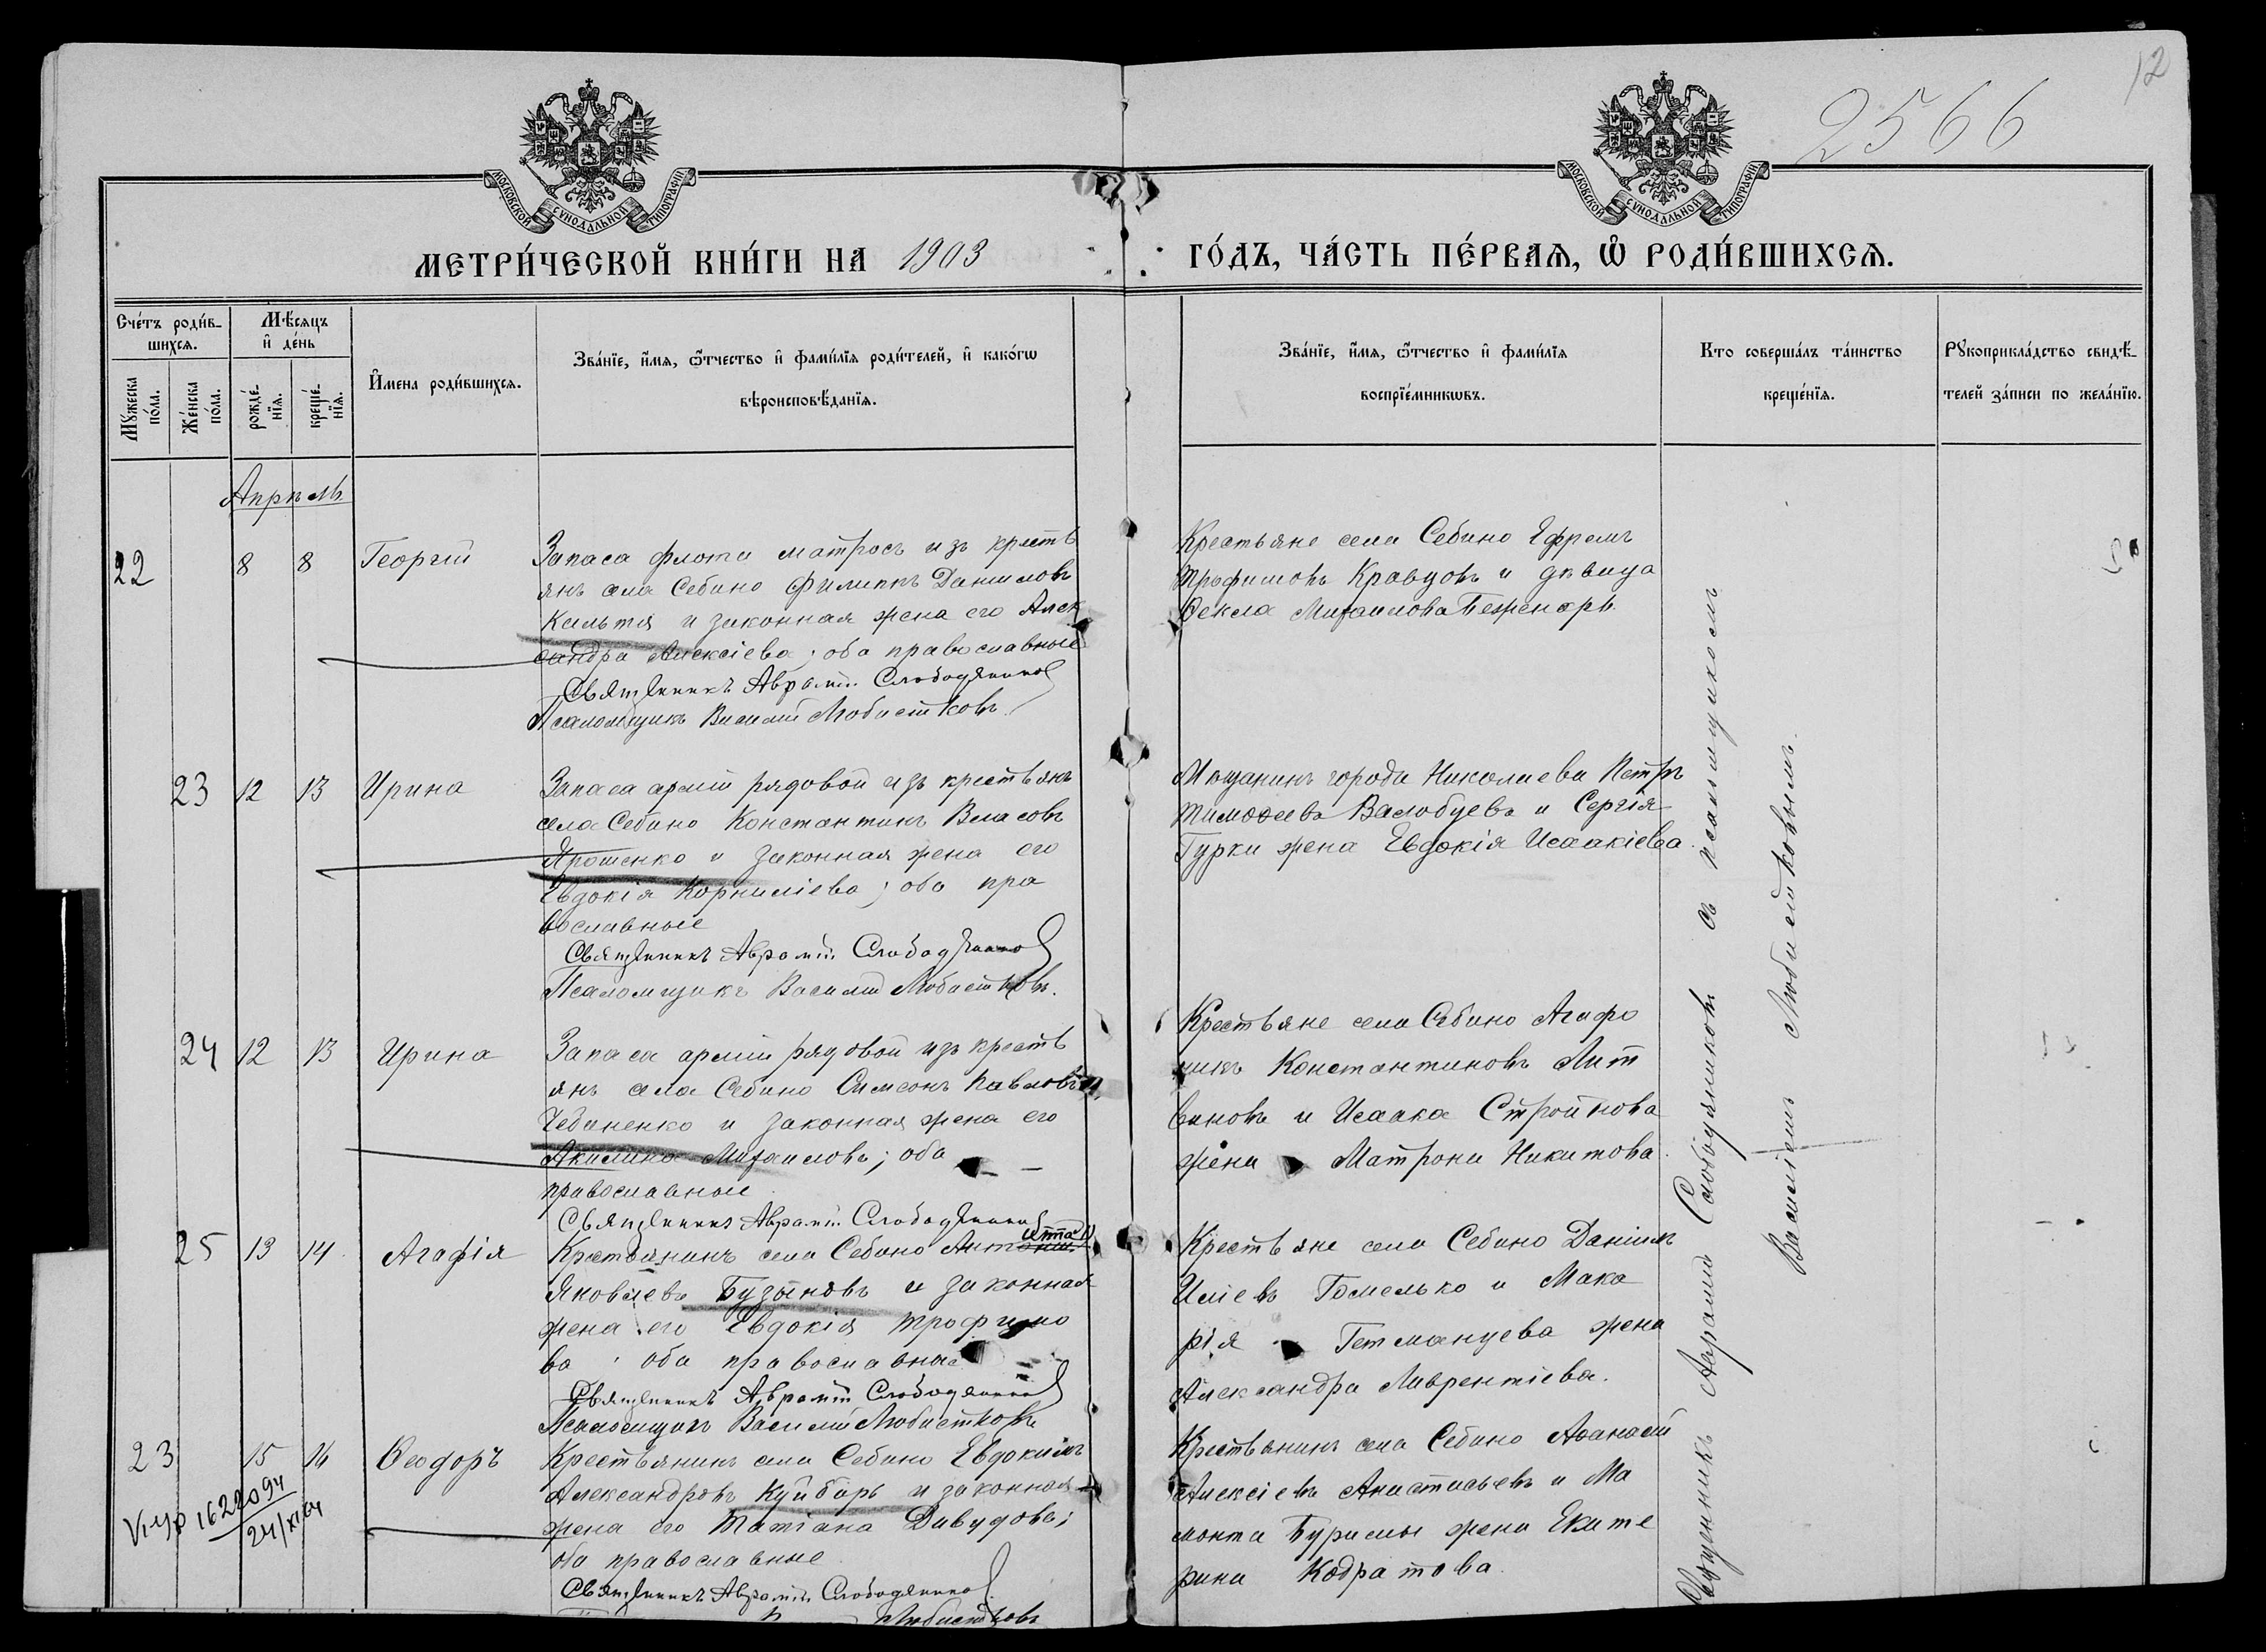 12
2566
МОСКОВСКОЙ СѴНОДАЛЬНОЙ ТИПОГРАФІИ
МОСКОВСКОЙ СѴНОДАЛЬНОЙ ТИПОГРАФІИ
МЕТРИ́ЧЕСКОЙ КНИ́ГИ НА 1903 ГО́ДЪ, ЧА́СТЬ ПЕ́РВАѦ, Ѡ҆ РОДИ́ВШИХСѦ.
Сче́тъ роди́в-
шихсѧ.
Мꙋ́жеска
по́ла.
Же́нска
по́ла.
Мѣ́сѧцъ
и҆ де́нь
рожде́-
нїѧ.
креще́-
нїѧ.
И҆мена роди́вшихсѧ.
Зва́нїе, и҆́мѧ, ѻ҆́тчество и҆ фами́лїѧ роди́телей, и҆ како́гѡ
вѣроисповѣ́данїѧ.
Зва́нїе, и҆́мѧ, ѻ҆́тчество и҆ фами́лїѧ
воспрїе́мникѡвъ.
Кто соверша́лъ та́инство
креще́нїѧ.
Рꙋкоприкла́дство свидѣ́-
телей за́писи по жела́нїю.
Апрѣль
22 8 8 Георгій
Запаса флота матросъ изъ кресть
янъ села Себино Филиппъ Даниловъ
Кальтя и законная жена его Алек
сандра Алексіева; оба православные
Священникъ Аврамій Слободяников
Псаломщикъ Василій Любистковъ
Крестьяне села Себино Ефремъ
Трофимовъ Кравцовъ и дѣвица
Ѳекла Михаилова Беженарь
23 12 13 Ирина
Запаса арміи рядовой изъ крестьянъ
села Себино Константинъ Власовъ
Ярошенко и законная жена его
Евдокія Корниліева; оба пра
вославные
Священникъ Аврамій Слободяников
Псаломщикъ Василій Любистковъ.
Мѣщанинъ города Николаева Петръ
Тимоѳеевъ Валобуевъ и Сергія
Гурки жена Евдокія Исаакіева
24 12 13 Ирина
Запаса арміи рядовой изъ кресть
янъ села Себино Симеонъ Павловъ
Чебаненко и законная жена его
Акилина Михаилова; оба
православные
Священникъ Аврамій Слободяников
Крестьяне села Себино Агафо
никъ Константиновъ Лит
виновъ и Исаака Стройнова
жена Матрона Никитова.
25 13 14 Агафія
Крестьянинъ села Себино
Яковлевъ Бузыновъ и законная
жена его Евдокія Трофимо
ва оба православные
Священникъ Аврамій Слободяников
Псаломщикъ Василій Любистковъ
Крестьяне села Себино Даніилъ
Иліевъ Гомелько и Мака
рія Гетманцева жена
Александра Лаврентіева.
23 15 16 Ѳеодоръ
1622094
24/XI 64
Крестьянинъ села Себино Евдокимъ
Александровъ Куйбарь и законная
жена его Татіана Давидова;
оба православные
Священникъ Аврамій Слободяников
Любистковъ
Крестьянинъ села Себино Аѳанасій
Алексіевъ Анастасьевъ и Ма
монта Бурилы жена Екате
рина Кодратова.
Священникъ Аврамій Слободяниковъ съ псаломщикомъ
Василіемъ Любистковымъ.